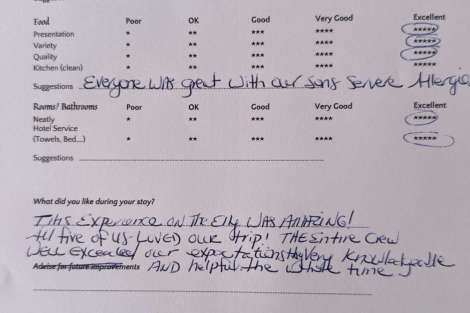 Food Poor OK Good Very Good Excellent
Presentation * ** *** **** *****
Variety * ** *** **** *****
Quality * ** *** **** *****
Kitchen (clean) * ** *** **** *****
Suggestions Everyone was great with our sons Servere Allergies
Rooms/ Bathrooms Poor OK Good Very Good Excellent
Neatly * ** *** **** *****
Hotel Service
(Towels, Bed...) * ** *** **** *****
Suggestions
What did you like during your stay?
This Experience on The Elite WAS AMAZING!
All five of us LOVED our trip! THE Entire Crew
Well exceeded our expectations They Very Knowledgeable
Advise for future improvements AND helpful the whole time